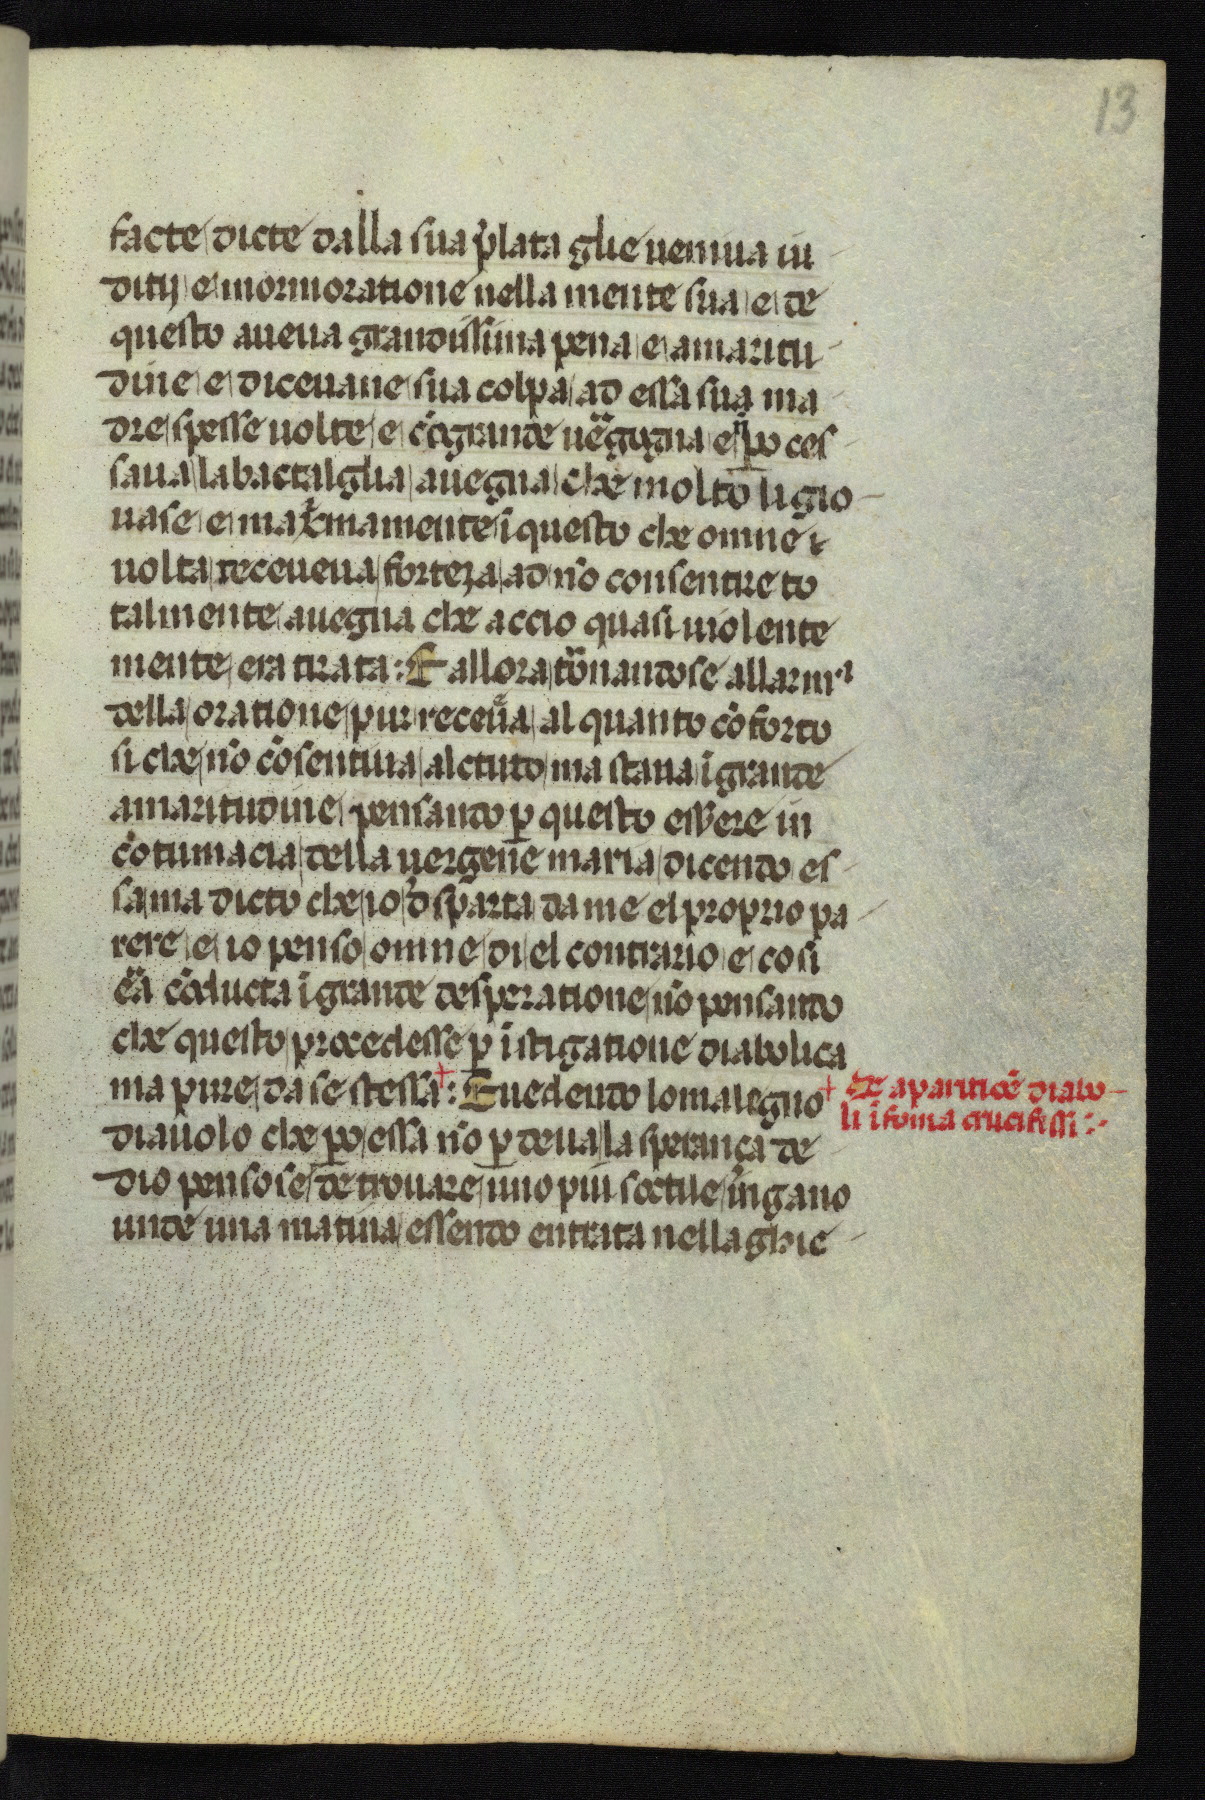 13
facte dicte dalla sua p̾lata glie ueniua iu
ditij e mormoratione nella mente sua e de
questo aueua grandissima pena e amaritu
dine e diceuane sua colpa ad essa sua ma
dre spesse uolte e cō grande uēgogna e ꝑo ces
saua la bactalglia auegna che molto li gio
uase e maximamente ī questo che omne
uolta receueua forteza ad nō consentire to
talmente auegna che accio quasi uiolente
mente era tirata : E allora tornandose allarmi
della oratione pur receuēa al quanto cōforto
si che nō cōsentiua al ctuto ma staua ī grande
amaritudine pensando ꝑ questo essere in
cōtumacia della uergene maria dicendo es
sa ma dicto che io d̾sparta da me el proprio pa
rere e io penso omne di el contrario e cosi
ēa cōducta ī grande desperatione nō pensando
che questo procedesse ꝑ īstigatione diabolica
ma pure da se stessa + : E uedendo lo malegno
diauolo che ꝑo essa nō ꝑdeua la sperança de
dio penso se de trouare uno piu soctile īngano
unde una matina essendo entrata nella ghie
+ De aparitiōe diabo
li ī forma crucifissi :